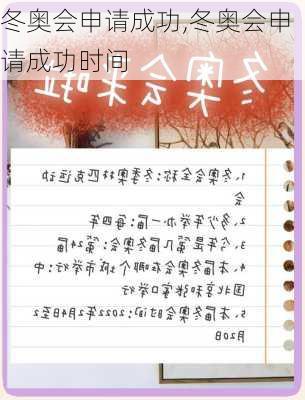 冬奥会申请成功,冬奥会申
请成功时间
冬奥会来啦
1、冬奥会全称:冬季奥林匹克运动
会
2、多少年举办一届:每四年
3、今年是第几届冬奥会:第24届
4、本届冬奥会在哪个城市举行:中
国北京和张家口举行
5、本届冬奥会时间:2022年2月4日至2
月20日